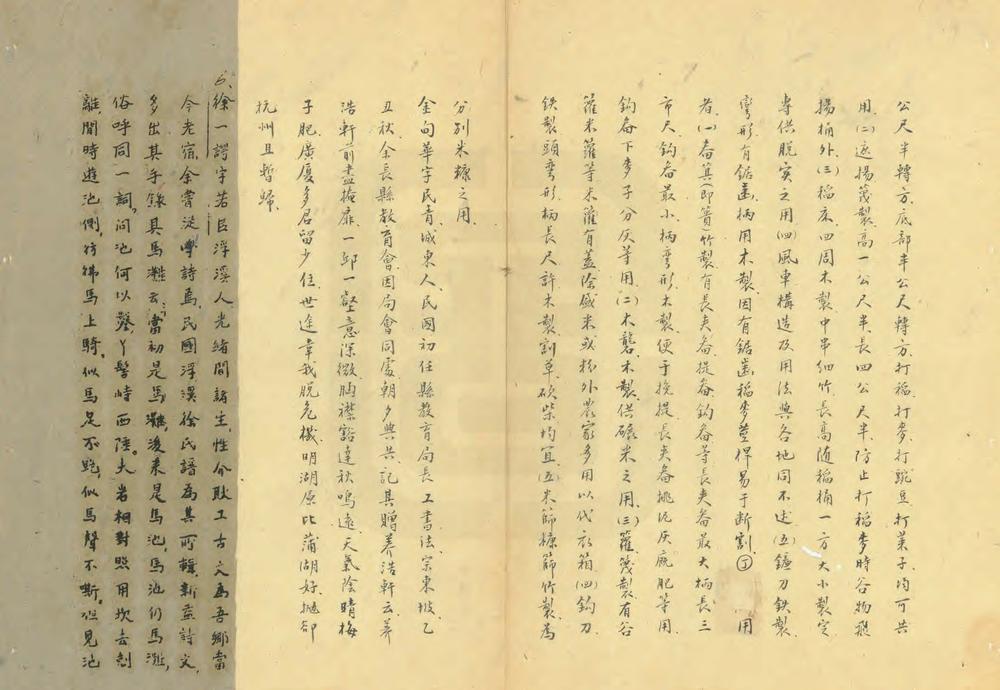 公尺半轉方．底部半公尺轉方．打稻．打麥．打豌豆．打菜子．均可共
用．(二)遮揚篾製高一公尺半．長四公尺半．防止打稻麥時谷物飛
揚桶外．(三)稻床四周木製．中串細竹．長高隨稻桶一方大小製定．
專供脫實之用．(四)風車構造及用法與各地同不述．(五)鐮刀鉄製
彎形．有鋸齒．柄用木製．因有鋸齒．稻麥莖桿易于斷割．用
者．(一)畚箕(即簣)竹製．有長夾畚．提畚．鈎畚等．長夾畚最大．柄長三
市尺．鈎畚最小．柄彎形．木製．便于挽提．長夾畚挑泥灰廐肥等用．
鈎畚下麥子分灰等用．(二)木礱．木製．供碾米之用．(三)籮篾製．有谷
籮米籮等．米籮有蓋．除盛米或粉外．農家多用以代衣箱．(四)鈎刀
鉄製．頭彎形．柄長尺許．木製．割草．砍柴均宜．(五)米篩糠篩竹製．為
分別米糠之用．
金旬華字民育．城東人．民國初任縣教育局長．工書法．宗東坡．乙
丑秋．余長縣教育會．因局會同處．朝夕與共．記其贈養浩軒云．養
浩軒前盡掩扉．一邱一壑意深微．胸襟豁達秋鳴遠．天氣陰晴梅
子肥．廣廈多君留少住．世途幸我脫危機．明湖原比蒲湖好．拋却
杭州且暫歸．
徐一諤字若臣．浮溪人．光緒間諸生．性介耿．工古文．為吾鄉當
今老宿．余嘗從學詩焉．民國浮溪徐氏譜為其所輯．新益詩文．
多出其手．錄其馬灘云．當初是馬灘．後來是馬池．馬池仍馬灘．
俗呼同一詞．問池何以鑿．丫髻峙西陸．大岩相對照．用坎去剋
離．閒時遊池側．彷彿馬上騎．似馬足不跑．似馬聲不嘶．但見池